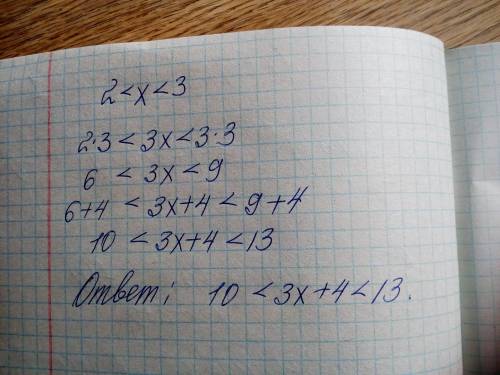 2<x<3
2·3<3x<3·3
6 <3x<9
6+4 <3x+4<9+4
10 <3x+4<13
Ответ; 10 <3x+4<13.